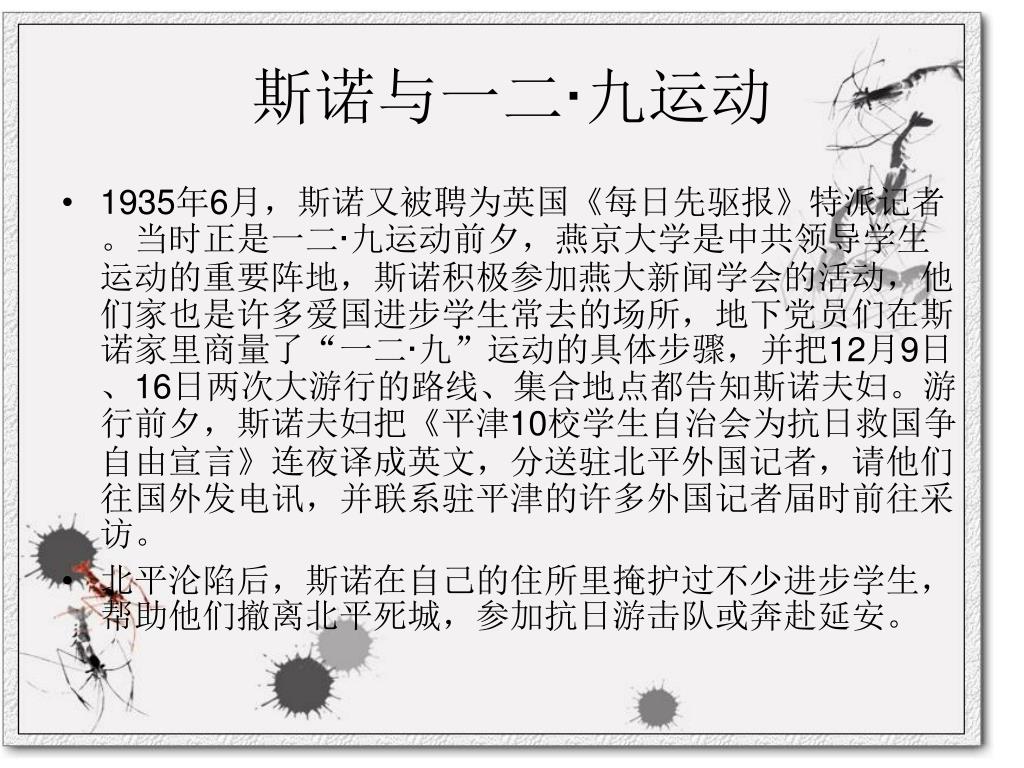 斯诺与一二·九运动
• 1935年6月，斯诺又被聘为英国《每日先驱报》特派记者
。当时正是一二·九运动前夕，燕京大学是中共领导学生
运动的重要阵地，斯诺积极参加燕大新闻学会的活动，他
们家也是许多爱国进步学生常去的场所，地下党员们在斯
诺家里商量了“一二·九”运动的具体步骤，并把12月9日
、16日两次大游行的路线、集合地点都告知斯诺夫妇。游
行前夕，斯诺夫妇把《平津10校学生自治会为抗日救国争
自由宣言》连夜译成英文，分送驻北平外国记者，请他们
往国外发电讯，并联系驻平津的许多外国记者届时前往采
访。
• 北平沦陷后，斯诺在自己的住所里掩护过不少进步学生，
帮助他们撤离北平死城，参加抗日游击队或奔赴延安。